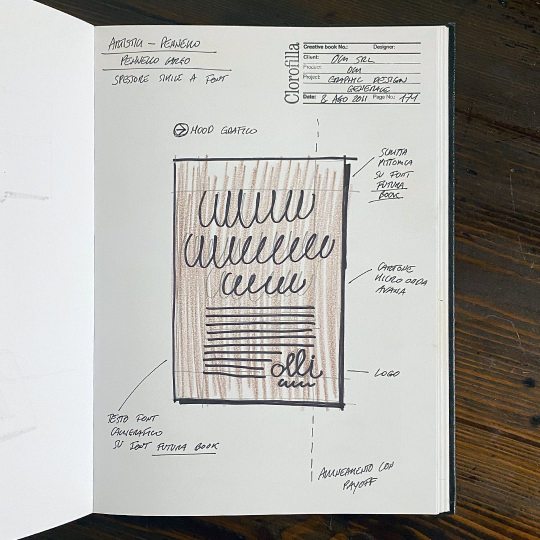 ARTISTICI - PENNELLO
PENNELLO LARGO
SPESSORE SIMILE A FONT
Clorofilla
Creative book No.: Designer:
Client: DLM SRL
Product: DLM
Project: GRAPHIC DESIGN
GENERALE
Date: 8 AGO 2011 Page No.: 171
MOOD GRAFICO
SCRITTA
PITTORICA
SU FONT
FUTURA
BOOK
CARTONE
MICRO ONDA
AVANA
olli
LOGO
TESTO FONT
CALLIGRAFICO
SU FONT FUTURA BOOK
ALLINEAMENTO CON
PAYOFF